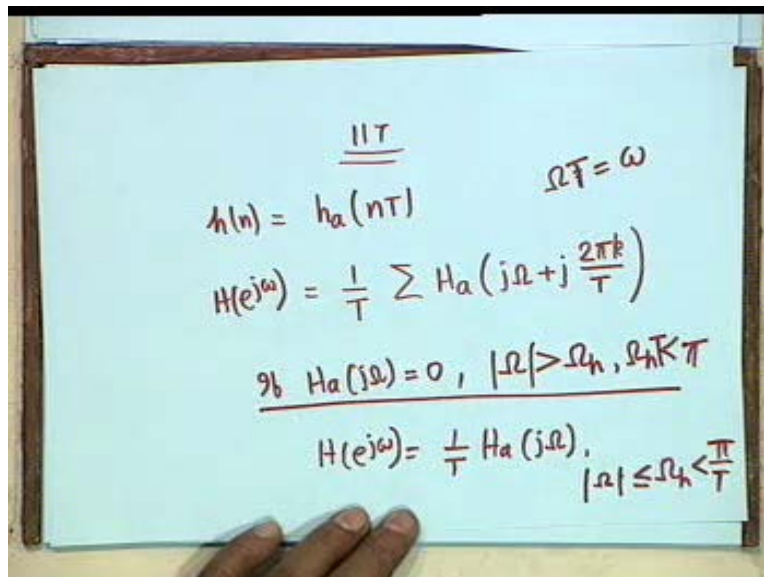 IIT
h(n) = ha(nT)    ΩT = ω
H(e^jω) = 1/T Σ Ha(jΩ + j 2πk/T)
If Ha(jΩ) = 0, |Ω| > Ωh, ΩhT < π
H(e^jω) = 1/T Ha(jΩ), |Ω| ≤ Ωh < π/T